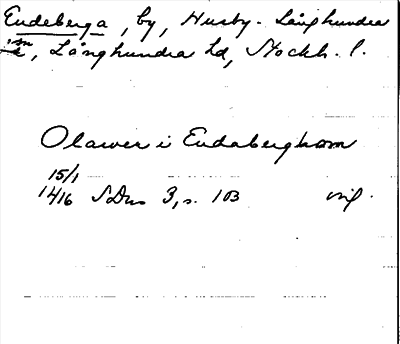 Eudeberga, by, Husby-Långhundra
sn, Långhundra hd, Stockh. l.
Olawer i Eudaberghom
15/1
1416 SDns 3, s. 103 orig.